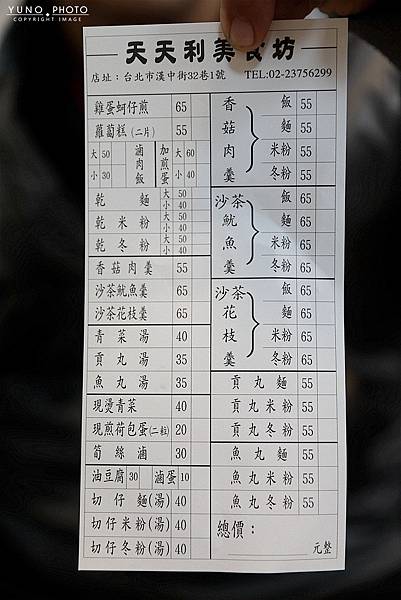 YUNO PHOTO
COPYRIGHT IMAGE
天天利美食坊
店址：台北市漢中街32巷1號 TEL:02-23756299
雞蛋蚵仔煎 65
蘿蔔糕(二片) 55
滷肉飯 大50 小30 加煎蛋 大60 小40
乾麵 大50 小40
乾米粉 大50 小40
乾冬粉 大50 小40
香菇肉羹 55
沙茶魷魚羹 65
沙茶花枝羹 65
青菜湯 40
貢丸湯 35
魚丸湯 35
現燙青菜 40
現煎荷包蛋(二粒) 20
筍絲滷 30
油豆腐 30 滷蛋 10
切仔麵(湯) 40
切仔米粉(湯) 40
切仔冬粉(湯) 40
香菇肉羹
飯 55
麵 55
米粉 55
冬粉 55
沙茶魷魚羹
飯 65
麵 65
米粉 65
冬粉 65
沙茶花枝羹
飯 65
麵 65
米粉 65
冬粉 65
貢丸麵 55
貢丸米粉 55
貢丸冬粉 55
魚丸麵 55
魚丸米粉 55
魚丸冬粉 55
總價：
元整